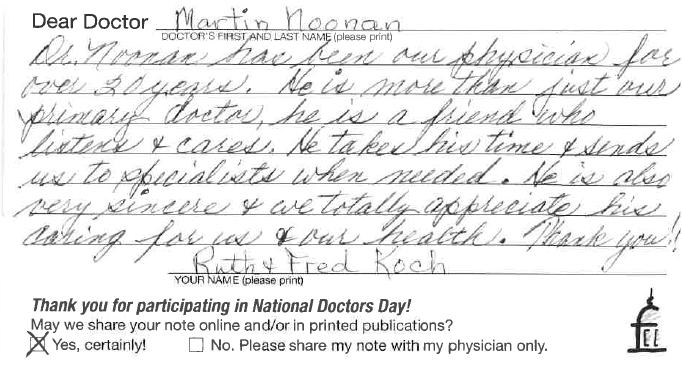 Dear Doctor Martin Noonan
DOCTOR'S FIRST AND LAST NAME (please print)
Dr. Noonan has been our physician for
over 20 years. He is more than just our
primary doctor, he is a friend who
listens & cares. He takes his time & sends
us to specialists when needed. He is also
very sincere & we totally appreciate his
caring for us & our health. Thank you!!
Ruth & Fred Koch
YOUR NAME (please print)
Thank you for participating in National Doctors Day!
May we share your note online and/or in printed publications?
Yes, certainly! No. Please share my note with my physician only.